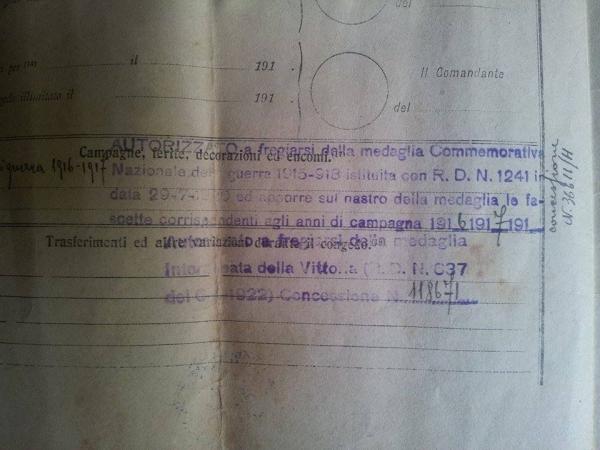 del
per il 191
Il Comandante
illimitato il 191
del
Campagne, ferite, decorazioni ed encomi.
guerra 1916-1917
AUTORIZZATO a fregiarsi della medaglia Commemorativa
Nazionale della guerra 1915-918 istituita con R. D. N. 1241 in
data 29-7- ed apporre sul nastro della medaglia le fa-
scette corrispondenti agli anni di campagna 1916 1917 191
concessione
N. 36611/H
Trasferimenti ed altre variazioni durante il congedo.
Autorizzato a fregiarsi della medaglia
Interalleata della Vittoria (R. D. N. 637
del 6 1922) Concessione N. 118671